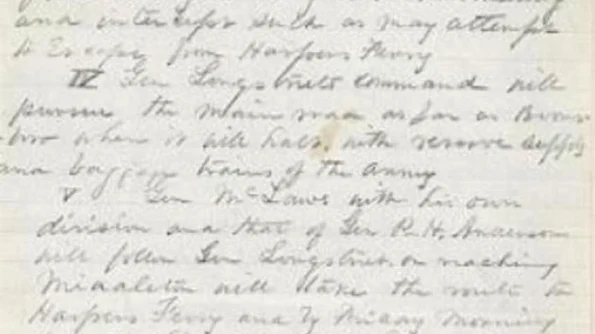 and intercept such as may attempt
to Escape from Harpers Ferry
IV Gen Longstreets command will
pursue the main road as far as Boons-
boro where it will halt, with reserve supply
and baggage trains of the army
V Gen McLaws with his own
division and that of Gen R. H. Anderson
will follow Gen Longstreet on reaching
Middleton will take the route to
Harpers Ferry and by Friday morning